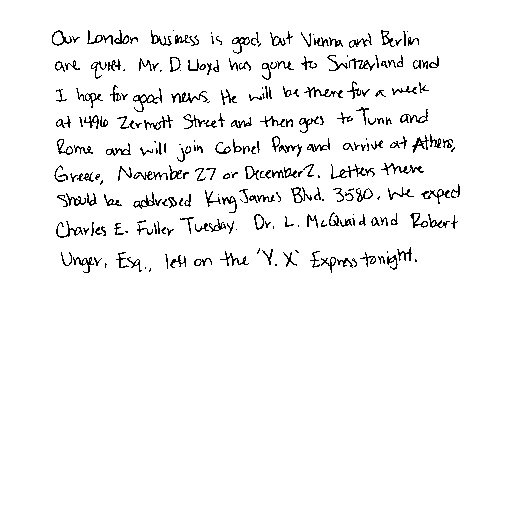 Our London business is good, but Vienna and Berlin
are quiet. Mr. D. Lloyd has gone to Switzerland and
I hope for good news. He will be there for a week
at 1496 Zermott Street and then goes to Turin and
Rome and will join Colonel Parry and arrive at Athens,
Greece, November 27 or December 2. Letters there
should be addressed King James Blvd. 3580. We expect
Charles E. Fuller Tuesday. Dr. L. McQuaid and Robert
Unger, Esq., left on the 'Y. X' Express tonight.